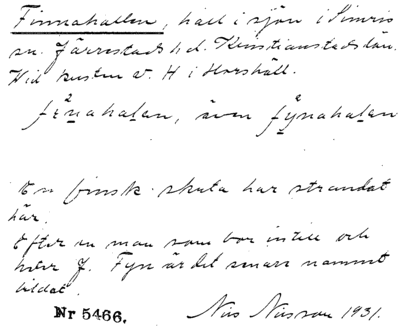 Finnahallen, hall i sjön i Simris
sn. Järrestads hd. Kristianstads län.
Vid kusten v. H i Horshall.
fɪnahalan, även fynahalan
En finsk skuta har strandat
här.
Efter en man som bor intill och
heter J. Fyn är det senare namnet
bildat.
Nr 5466. Nils Nilsson 1931.